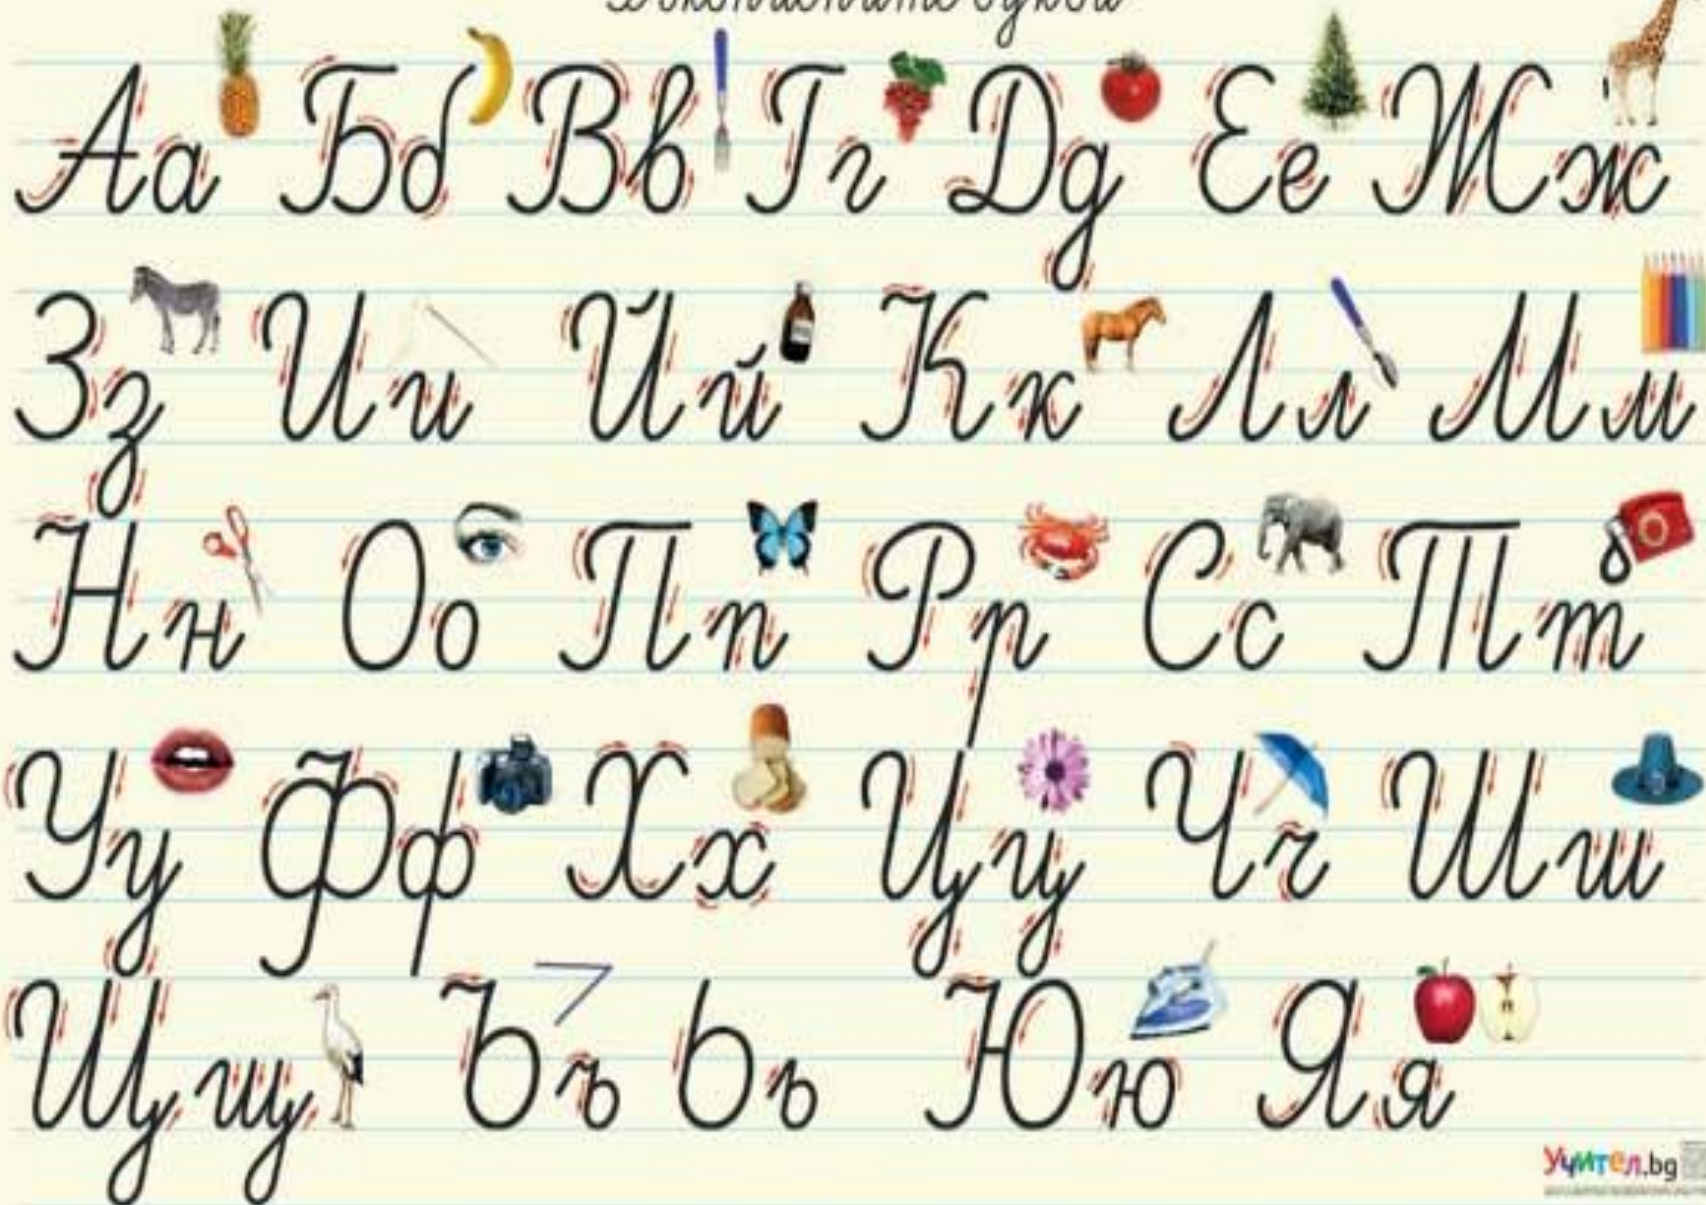 Аа Бб Вв Гг Дд Ее Жж
Зз Ии Йй Кк Лл Мм
Нн Оо Пп Рр Сс Тт
Уу Фф Хх Цц Чч Шш
Щщ Ъъ Ьь Юю Яя
Учител.bg